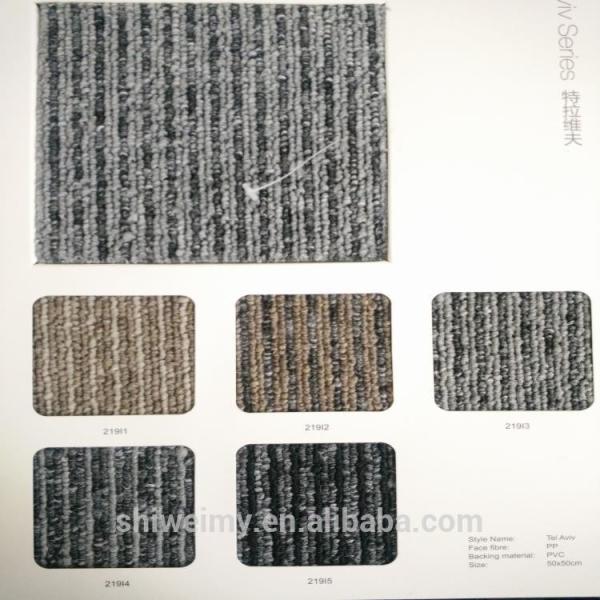 viv Series 特拉维夫
219I1
219I2
219I3
219I4
219I5
shiweimy.en.alibaba.com
Style Name: Tel Aviv
Face fibre: PP
Backing material: PVC
Size: 50x50cm